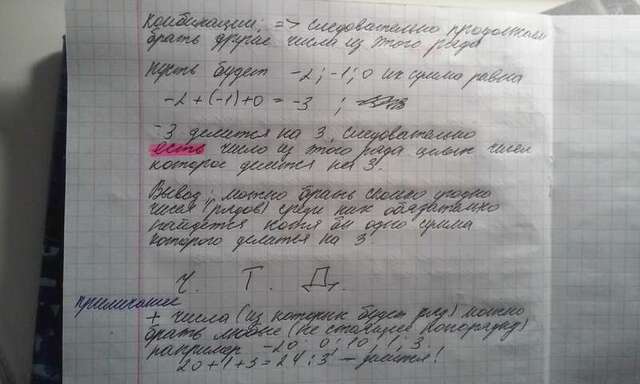 комбинации; => следовательно продолжаем
брать другие числа из этого ряда
Пусть будет -2; -1; 0 их сумма равна
-2 + (-1) + 0 = -3 ;
-3 делится на 3, следовательно
есть число из этого ряда целых чисел
которое делится на 3.
Вывод: можно брать сколько угодно
чисел (рядов) среди них обязательно
найдется хотя бы одно сумма
которого делится на 3.
Ч. Т. Д.
примечание
+ числа (из которых будет ряд) можно
брать любые (не стоящие попорядку)
например -20; 0; 10; 1; 3.
20 + 1 + 3 = 24 : 3 — делится!